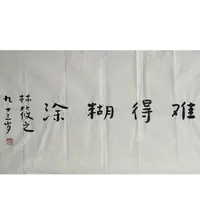 难得糊涂
林筱之
九十三岁